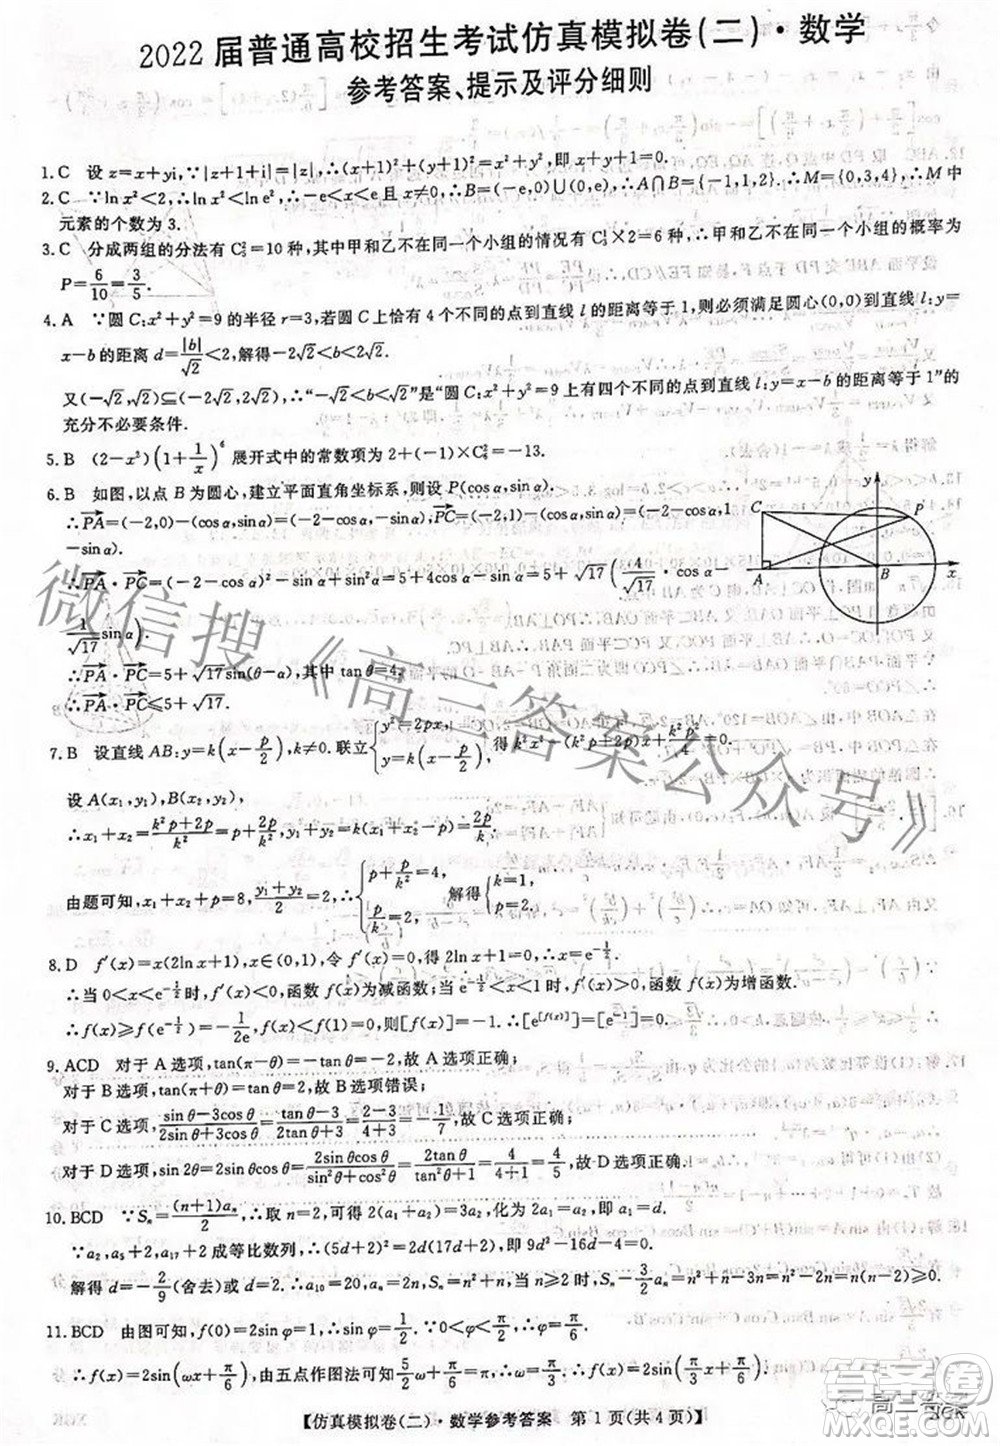 2022 届普通高校招生考试仿真模拟卷(二)·数学
参考答案、提示及评分细则
1. C 设 z=x+yi,∵|z+1+i|=|z|,∴(x+1)²+(y+1)²=x²+y²,即 x+y+1=0.
2. C ∵ln x²<2,∴ln|x|<1=ln e,∴-e<x<e 且 x≠0,∴B=(-e,0)∪(0,e),∴A∩B={-1,1,2}.∴M={0,3,4},∴M 中
元素的个数为 3.
3. C 分成两组的分法有 C₅²=10 种,其中甲和乙不在同一个小组的情况有 C₃¹×2=6 种,∴甲和乙不在同一个小组的概率为
P=6/10=3/5.
4. A ∵圆 C:x²+y²=9 的半径 r=3,若圆 C 上恰有 4 个不同的点到直线 l 的距离等于 1,则必须满足圆心(0,0)到直线 l:y=
x-b 的距离 d=|b|/√2<2,解得-2√2<b<2√2.
又(-√2,√2)⊆(-2√2,2√2),∴“-√2<b<√2”是“圆 C:x²+y²=9 上有四个不同的点到直线 l:y=x-b 的距离等于 1”的
充分不必要条件.
5. B (2-x³)(1+1/x)⁶ 展开式中的常数项为 2+(-1)×C₆³=-18.
6. B 如图,以点 B 为圆心,建立平面直角坐标系,则设 P(cos α,sin α).
∴PA=(-2,0)-(cos α,sin α)=(-2-cos α,-sin α),PC=(-2,1)-(cos α,sin α)=(-2-cos α,1
-sin α).
y
C
P
A
B
x
∴PA·PC=(-2-cos α)²-sin α+sin²α=5+4cos α-sin α=5+√17(4/√17·cos α-
1/√17 sin α).
∴PA·PC=5+√17sin(θ-α),其中 tan θ=4,
∴PA·PC≤5+√17.
7. B 设直线 AB:y=k(x-p/2),k≠0.联立{y²=2px, y=k(x-p/2), 得 k²x²-(k²p+2p)x+k²p²/4=0.
设 A(x₁,y₁),B(x₂,y₂),
∴x₁+x₂=(k²p+2p)/k²=p+2p/k²,y₁+y₂=k(x₁+x₂-p)=2p/k.
由题可知,x₁+x₂+p=8,(y₁+y₂)/2=2,∴{p+p/k²=4, p/k=2, 解得{k=1, p=2.
8. D f′(x)=x(2ln x+1),x∈(0,1),令 f′(x)=0,得 2ln x+1=0,x=e^(-1/2).
∴当 0<x<e^(-1/2) 时,f′(x)<0,函数 f(x)为减函数;当 e^(-1/2)<x<1 时,f′(x)>0,函数 f(x)为增函数.
∴f(x)≥f(e^(-1/2))=-1/2e,又 f(1)=0,∴f(x)<0,则[f(x)]=-1.∴[e^[f(x)]]=[e⁻¹]=[1/e]=0.
9. ACD 对于 A 选项,tan(π-θ)=-tan θ=-2,故 A 选项正确;
对于 B 选项,tan(π+θ)=tan θ=2,故 B 选项错误;
对于 C 选项,(sin θ-3cos θ)/(2sin θ+3cos θ)=(tan θ-3)/(2tan θ+3)=(2-3)/(4+3)=-1/7,故 C 选项正确;
对于 D 选项,sin 2θ=2sin θcos θ=2sin θcos θ/(sin²θ+cos²θ)=2tan θ/(tan²θ+1)=4/(4+1)=4/5,故 D 选项正确.
10. BCD ∵Sₙ=(n+1)aₙ/2,∴取 n=2,可得 2(a₁+a₂)=3a₂,即 2(2a₁+d)=3(a₁+d),即 a₁=d.
∵a₂,a₅,a₁₇+2 成等比数列,∴(5d+2)²=2d(17d+2),即 9d²-16d-4=0.
解得 d=-2/9(舍去)或 d=2,∴a₁₀=20,aₙ=2n,Sₙ=n²+n,当 n≥2 时,Sₙ-3/2aₙ=n²+n-3n=n²-2n=n(n-2)≥0.
11. BCD 由图可知,f(0)=2sin φ=1,∴sin φ=1/2.∵0<φ<π/2,∴φ=π/6.
∴f(x)=2sin(ωx+π/6),由五点作图法可知5/2ω+π/6=π/2+π/3,∴ω=π/3,∴f(x)=2sin(π/3x+π/6),∴f(4)=
【仿真模拟卷(二)·数学参考答案 第 1 页(共 4 页)】
XGK
微信搜《高三答案公众号》
答案圈
高三答案